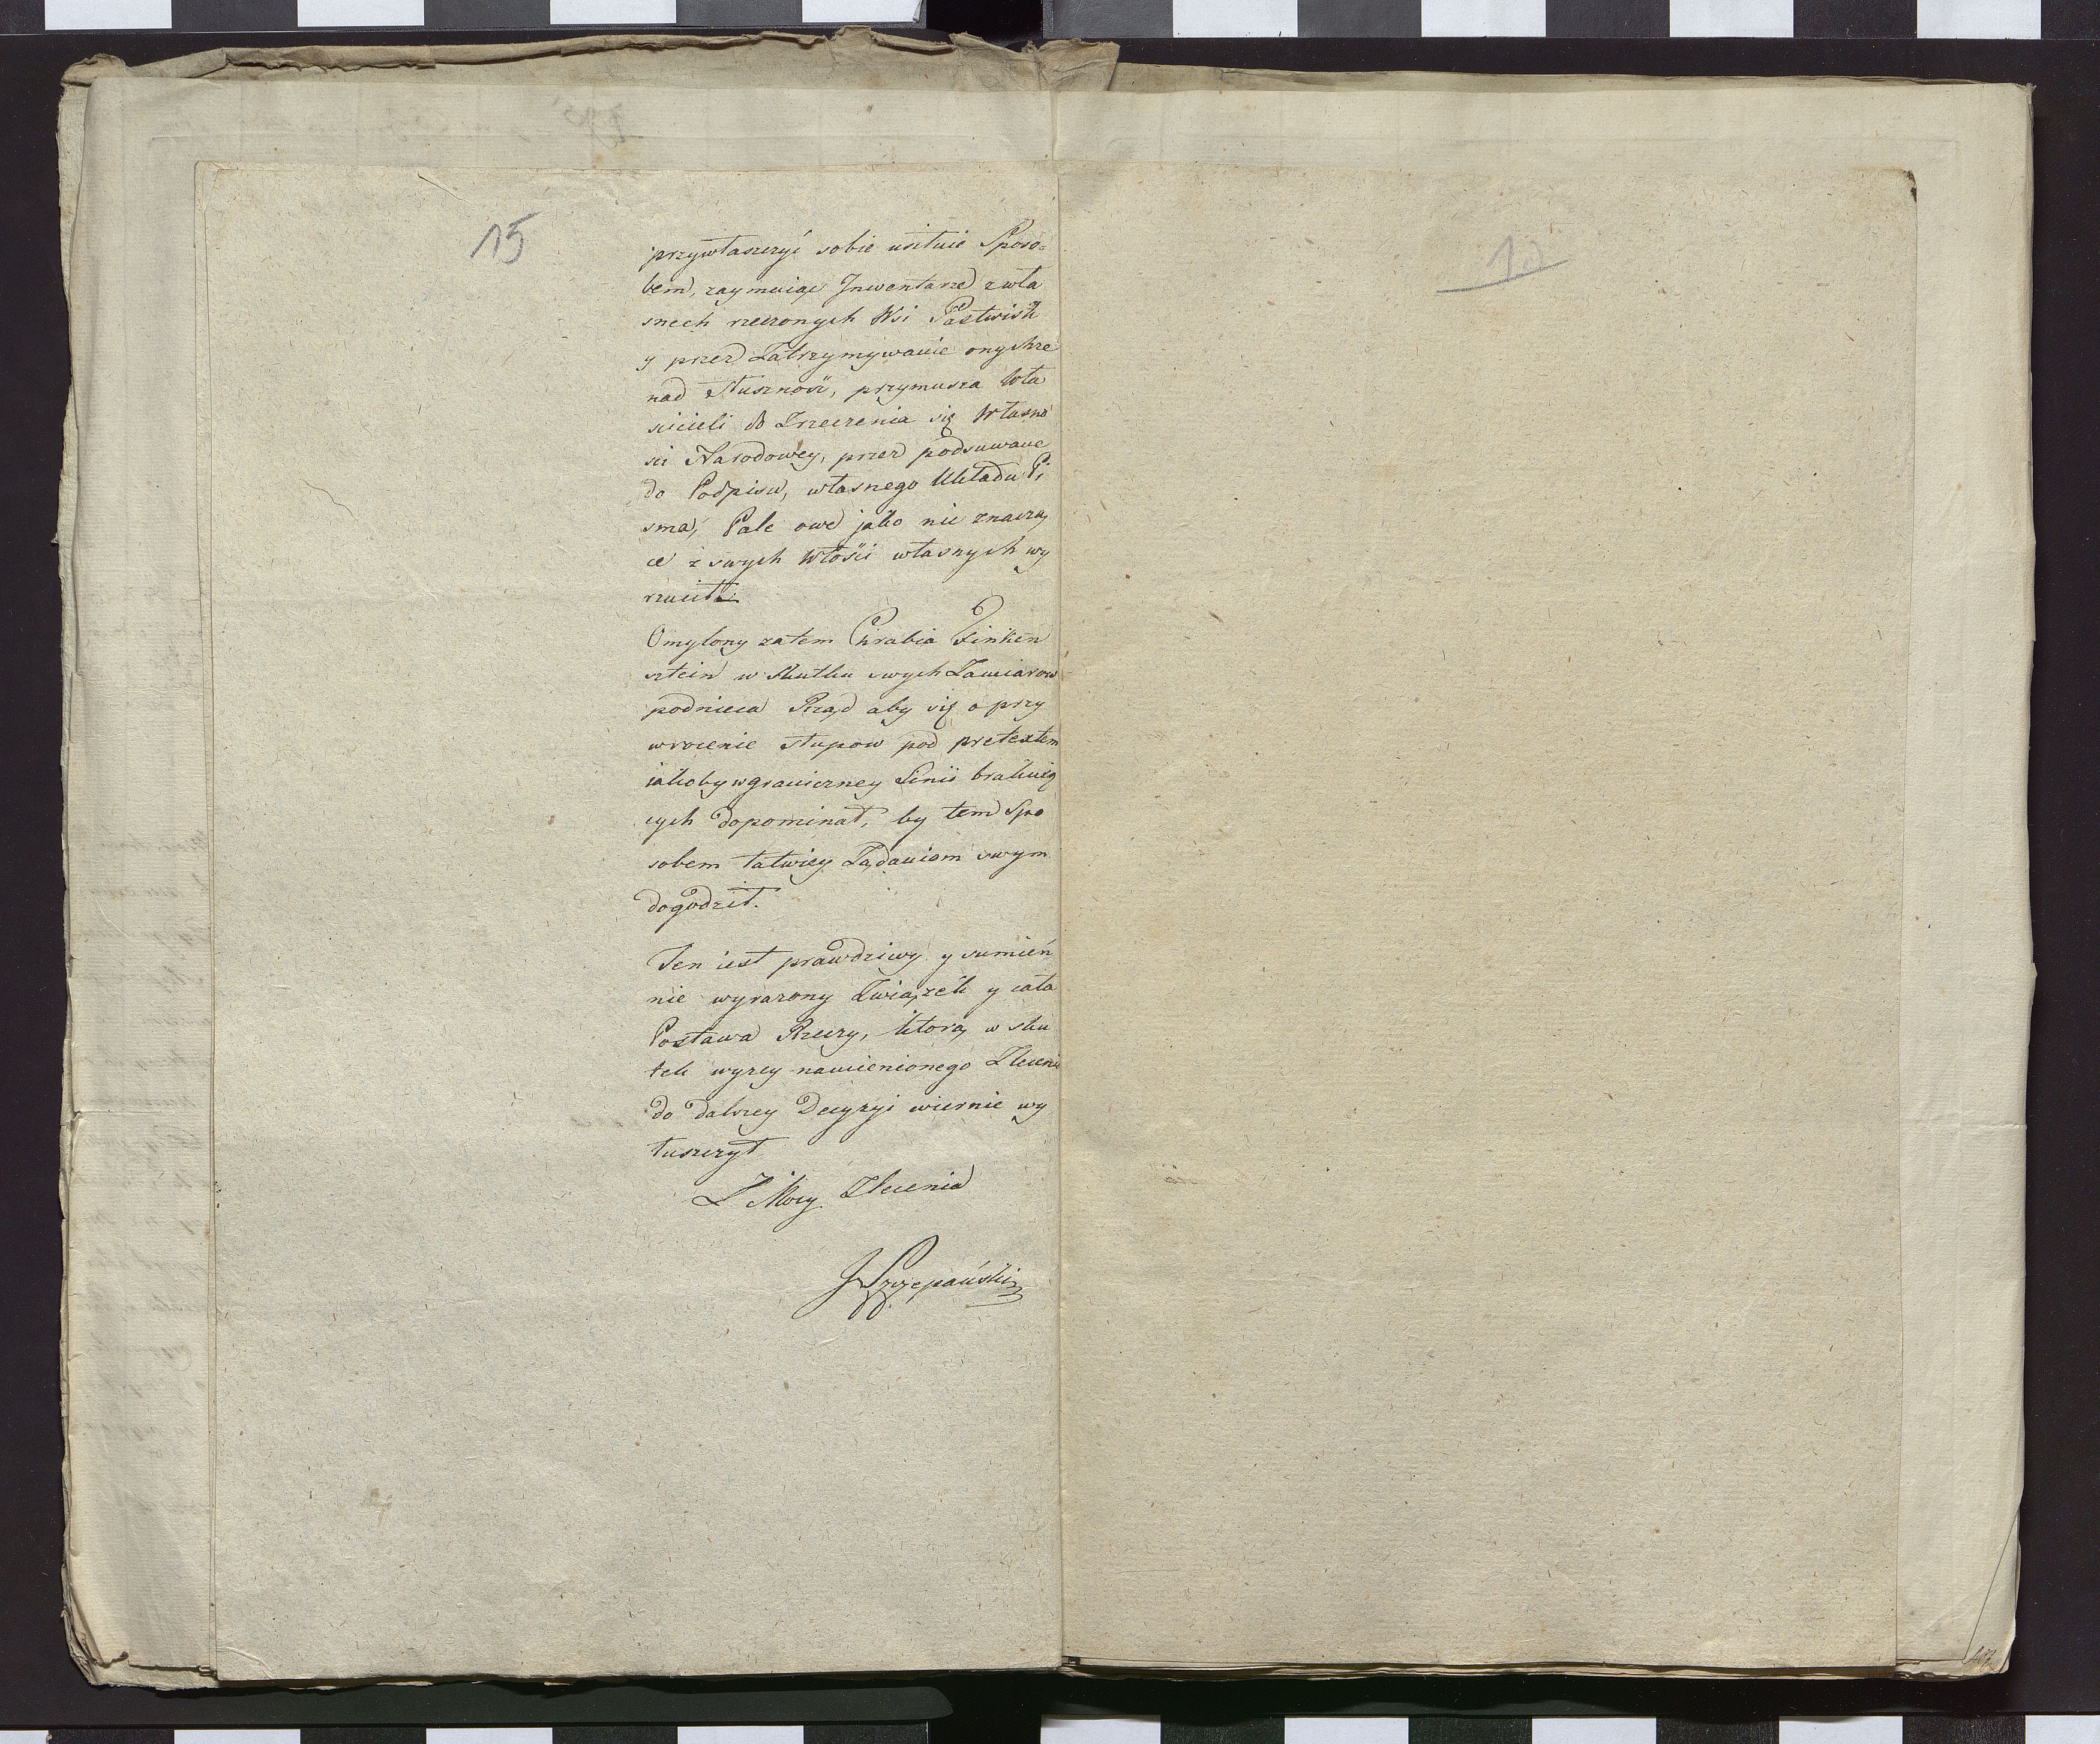 15
przywłaszczyć sobie usiłuie Sposo-
bem, zaymuiąc Jnwentarze z wła
snech rzeczonych Wsi Pastwisk
y przez Zatrzymywanie onychże
nad słuszność, przymusza Wła
scicieli do Zrzeczenia się Własno
sci Narodowey, przez podsuwane
do Podpisu, własnego Układu Pi
sma, Pale owe jako nic znaczą
ce z swych Włości własnych wy
rzucił.
Omylony zatem Chrabia Finken
sztein w skutku swych Zamiarow
podnieca Rząd aby się o przy
wrocenie słupow pod pretextem
iakoby w graniczney Linii brakuią
cych dopominał, by tem Spo
sobem łatwiey Żądaniom swym
dogodził.
Ten iest prawdziwy y sumień
nie wyrazony Związek y cała
Postawa Rzeczy, ktorą w sku
tek wyzey namienionego Zlecenia
do dalszey Decyzyi wiernie wy
łuszczył
Z Mocy Zlecenia
J Szczepański